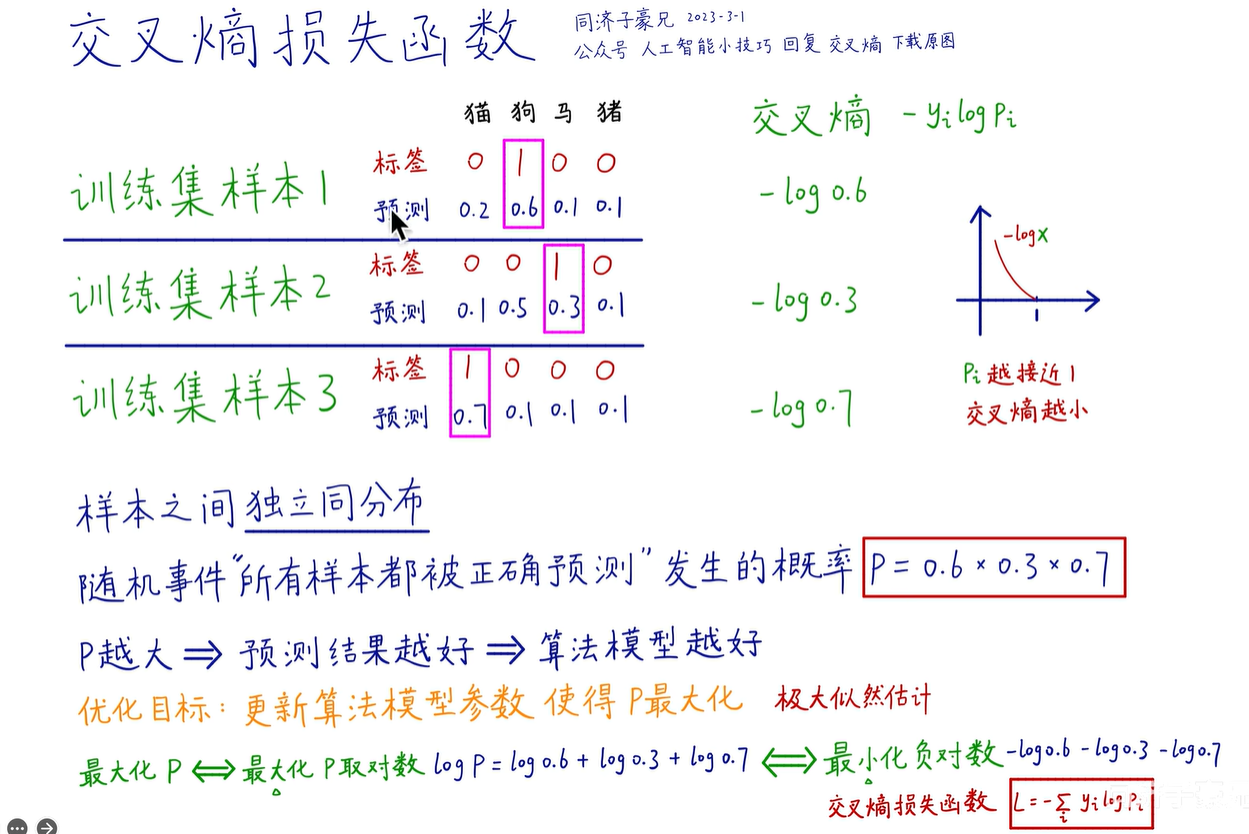 交叉熵损失函数
同济子豪兄 2023-3-1
公众号 人工智能小技巧 回复 交叉熵 下载原图
猫 狗 马 猪
交叉熵 -yᵢlogPᵢ
训练集样本1
标签 0 1 0 0
预测 0.2 0.6 0.1 0.1
-log 0.6
训练集样本2
标签 0 0 1 0
预测 0.1 0.5 0.3 0.1
-log 0.3
训练集样本3
标签 1 0 0 0
预测 0.7 0.1 0.1 0.1
-log 0.7
-logx
1
Pᵢ越接近1
交叉熵越小
样本之间独立同分布
随机事件“所有样本都被正确预测”发生的概率 P = 0.6 × 0.3 × 0.7
P越大 ⟹ 预测结果越好 ⟹ 算法模型越好
优化目标: 更新算法模型参数 使得 P最大化 极大似然估计
最大化 P ⟺ 最大化 P取对数 log P = log 0.6 + log 0.3 + log 0.7 ⟺ 最小化负对数 -log0.6 -log0.3 -log0.7
交叉熵损失函数 L = -∑ᵢ yᵢ log Pᵢ